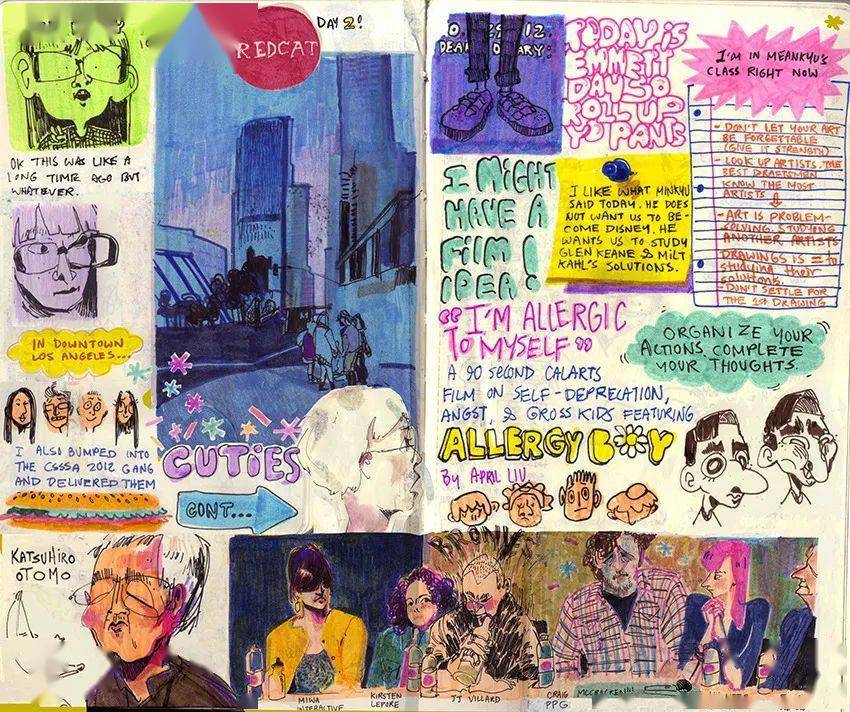 REDCAT
DAY 2!
OK THIS WAS LIKE A
LONG TIME AGO BUT
WHATEVER.
IN DOWNTOWN
LOS ANGELES...
I ALSO BUMPED INTO
THE CSSSA 2012 GANG
AND DELIVERED THEM
CUTIES
CONT...
KATSUHIRO
OTOMO
MIWA
INTERACTIVE
KIRSTEN
LEPORE
JJ VILLARD
CRAIG
PPG
MCCRACKEN!!!
12.
DEAR
TODAY IS
EMMETT
DAY SO
ROLL UP
YO PANTS
I'M IN MEANKYU'S
CLASS RIGHT NOW
- DON'T LET YOUR ART
BE FORGETTABLE
(GIVE IT STRENGTH)
- LOOK UP ARTISTS. THE
BEST DRAFTSMEN
KNOW THE MOST
ARTISTS
- ART IS PROBLEM-
SOLVING. STUDYING
ANOTHER ARTISTS
DRAWINGS IS = to
studying their
solutions.
DON'T SETTLE FOR
THE 1ST DRAWING
I MIGHT
HAVE A
FILM
IDEA!
I LIKE WHAT MINKYU
SAID TODAY. HE DOES
NOT WANT US TO BE-
COME DISNEY. HE
WANTS US TO STUDY
GLEN KEANE & MILT
KAHL'S SOLUTIONS.
"I'M ALLERGIC
TO MYSELF"
ORGANIZE YOUR
ACTIONS, COMPLETE
YOUR THOUGHTS.
A 90 SECOND CALARTS
FILM ON SELF-DEPRECATION,
ANGST, & GROSS KIDS FEATURING
ALLERGY BOY
By APRIL LIU